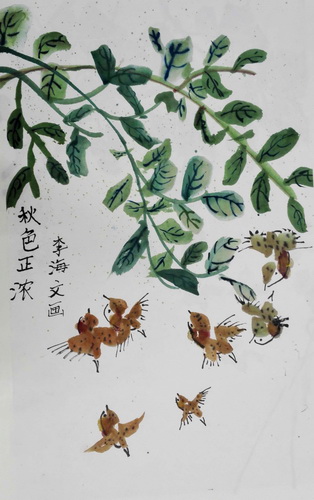 秋色正浓
李海文画